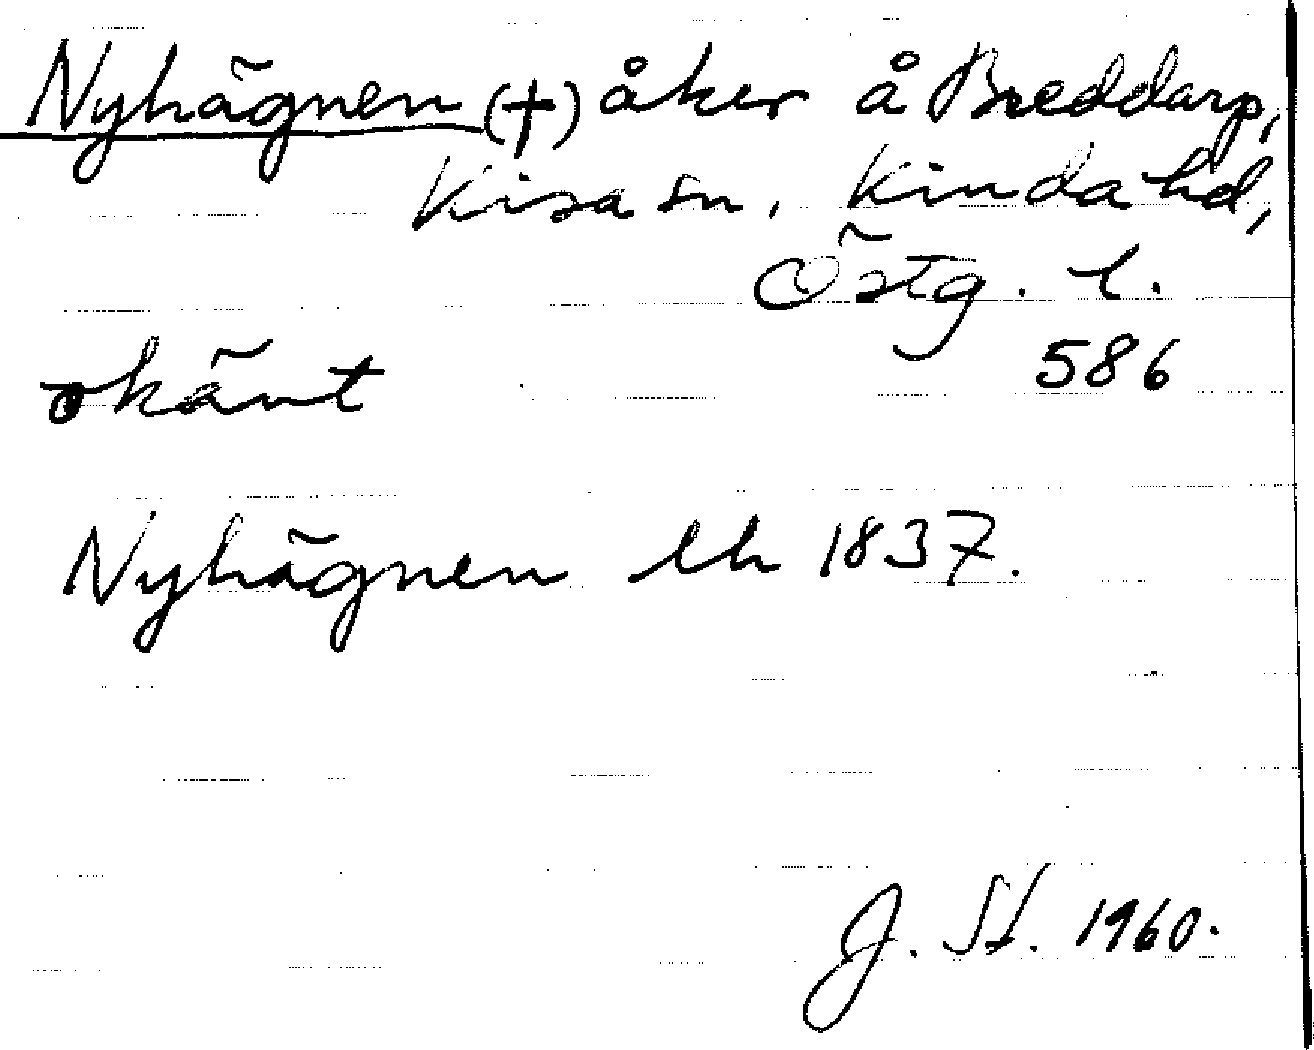 Nyhägnen (†) åker å Breddarp,
Kisa sn, Kinda hd,
Östg. l.
586
okänt
Nyhägnen lh 1837.
J. St. 1960.